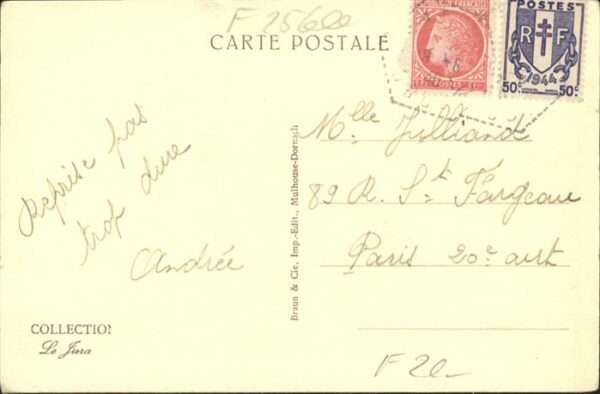 F 25600
CARTE POSTALE
POSTES
R F
1944
50c 50c
Reprise pas
trop dure
Andrée
Mlle Julliand
89 R. St Fargeau
Paris 20e arrt
Braun & Cie, Imp.-Edit., Mulhouse-Dornach
COLLECTION
Le Jura
F 20